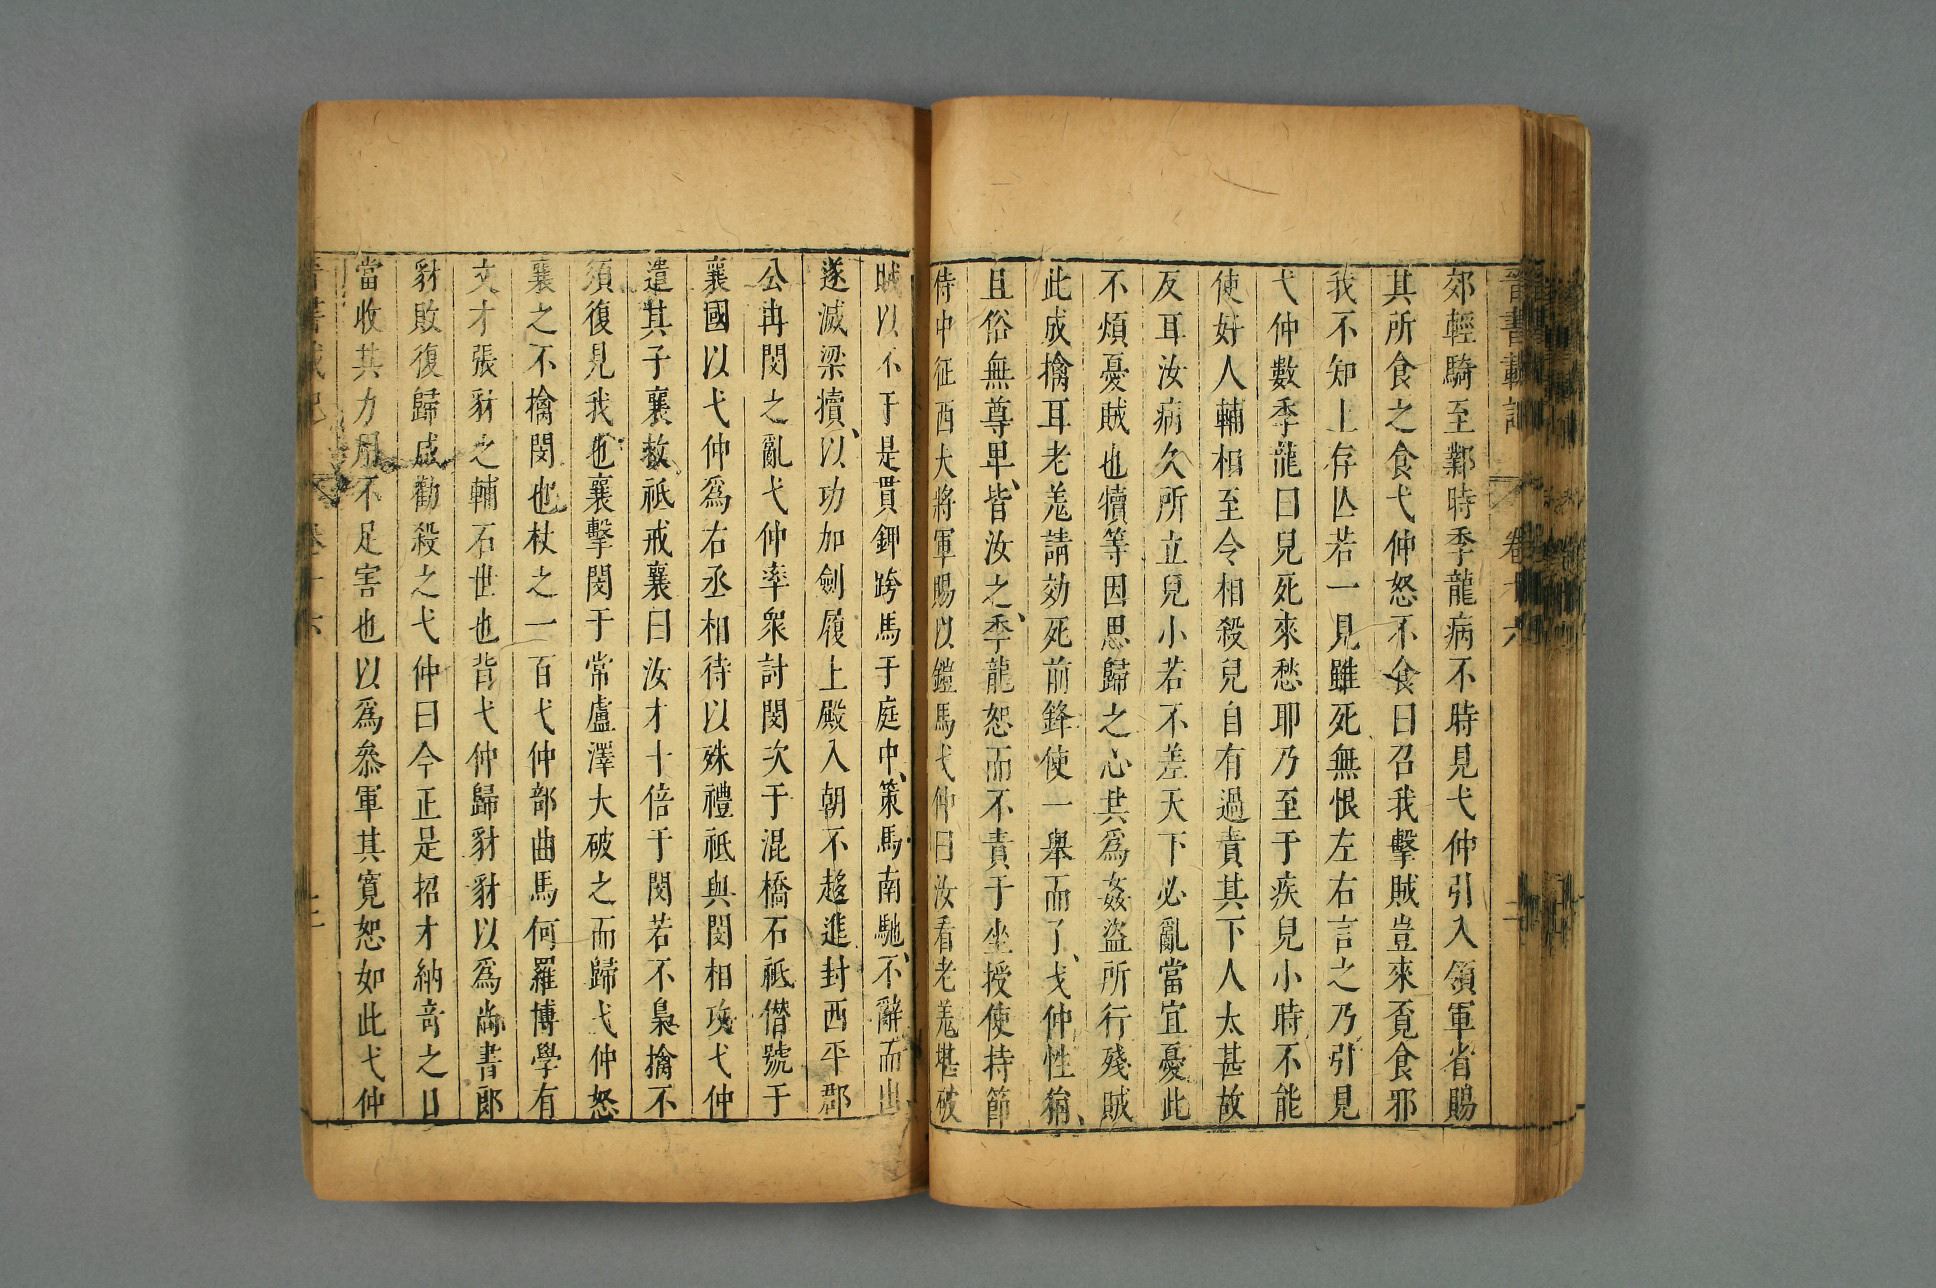 晉書載記 卷十六 二
郊輕騎至鄴時季龍病不時見弋仲引入領軍省賜
其所食之食弋仲怒不食曰召我擊賊豈來覓食邪
我不知上存亾若一見雖死無恨左右言之乃引見
弋仲數季龍曰兒死來愁耶乃至于疾兒小時不能
使好人輔相至令相殺兒自有過責其下人太甚故
反耳汝病久所立兒小若不差天下必亂當宜憂此
不煩憂賊也犢等因思歸之心共爲姦盜所行殘賊
此成擒耳老羌請効死前鋒使一舉而了弋仲性狷
且俗無尊卑皆汝之季龍恕而不責于坐授使持節
侍中征西大將軍賜以鎧馬弋仲曰汝看老羌堪破
賊以不于是貫鉀跨馬于庭中策馬南馳不辭而出
遂滅梁犢以功加劍履上殿入朝不趨進封西平郡
公冉閔之亂弋仲率衆討閔次于混橋石祗僭號于
襄國以弋仲爲右丞相待以殊禮祗與閔相攻弋仲
遣其子襄救祗戒襄曰汝才十倍于閔若不梟擒不
須復見我也襄擊閔于常盧澤大破之而歸弋仲怒
襄之不擒閔也杖之一百弋仲部曲馬何羅博學有
文才張豺之輔石世也背弋仲歸豺豺以爲尚書郎
豺敗復歸咸勸殺之弋仲曰今正是招才納奇之日
當收其力用不足害也以爲叅軍其寬恕如此弋仲
晉書載記 卷十六 三